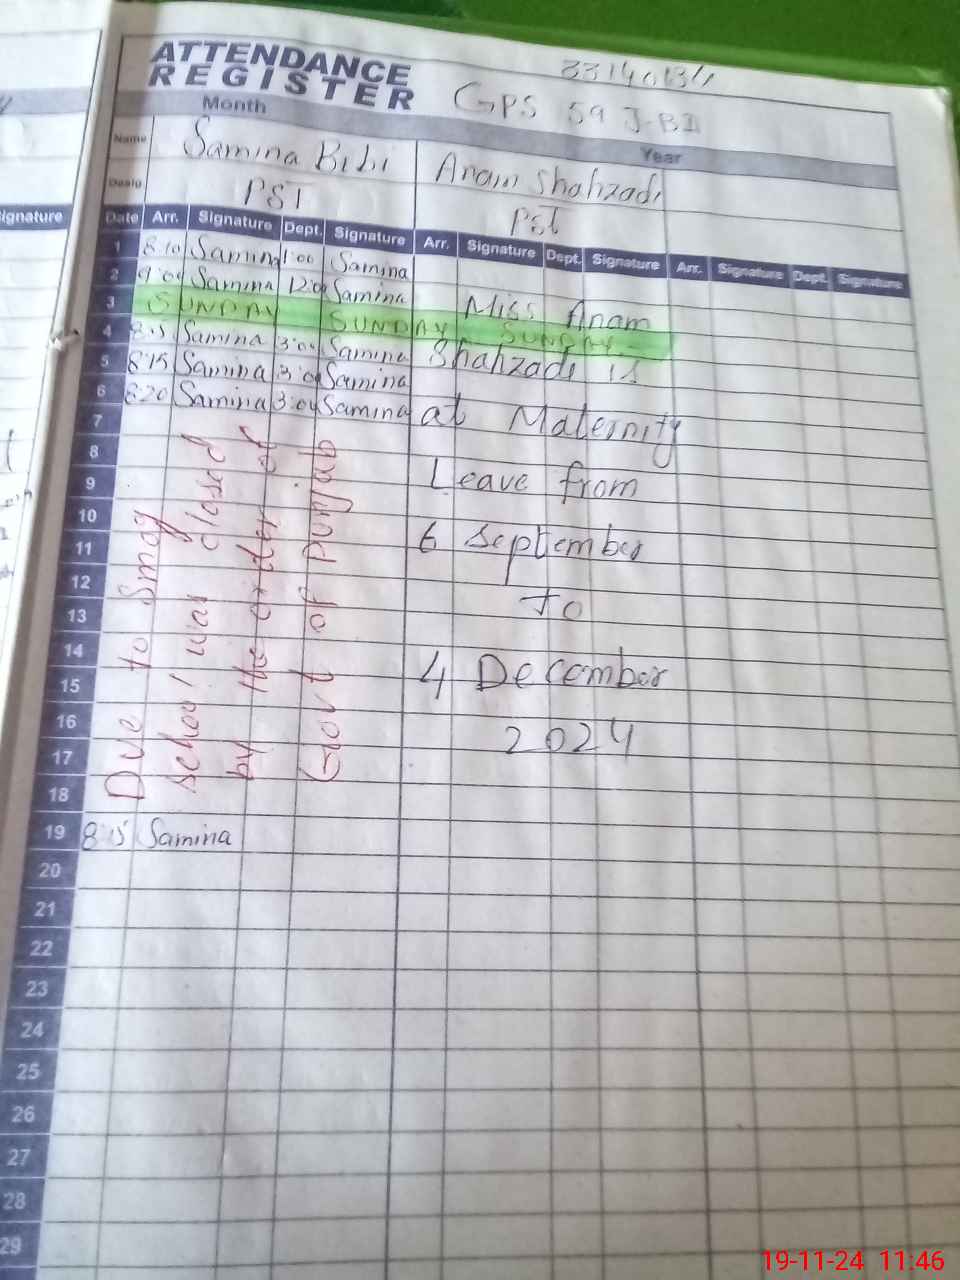 ATTENDANCE
REGISTER
GPS 59 J-BII
Month
Year
Name
Samina Bibi
Anam Shahzadi
Desig
PST
PST
Signature
Date Arr. Signature Dept. Signature Arr. Signature Dept. Signature Arr. Signature Dept. Signature
1 8:10 Samina 1:00 Samina
2 9:00 Samina 12:00 Samina
Miss Anam
3 SUNDAY SUNDAY SUNDAY
4 8:15 Samina 3:00 Samina
Shahzadi is
5 8:15 Samina 3:00 Samina
6 8:20 Samina 3:00 Samina
at Maternity
7
8
Leave from
9
10
6 September
11
12
To
13
14
4 December
15
16
2024
17
18
Due to Smog
school was closed
by the order of
Govt of punjab
19 8:15 Samina
20
21
22
23
24
25
26
27
28
29
19-11-24 11:46